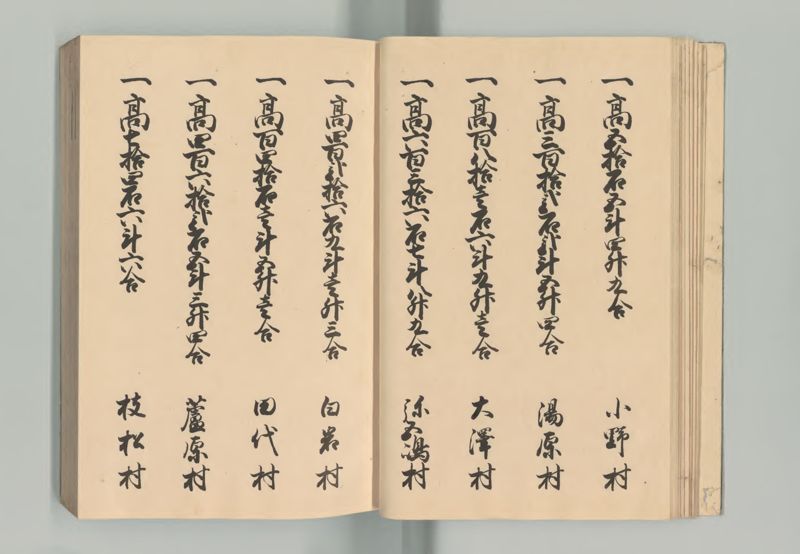 一高五拾石五斗四升九合 小野村
一高三百拾弐石弐斗五升四合 湯原村
一高百八拾壱石六斗九升壱合 大澤村
一高六百三拾六石七斗八升九合 弥五嶋村
一高四百弐拾六石九斗壱升三合 白岩村
一高百四拾石三斗五升壱合 田代村
一高四百六拾弐石五斗三升四合 蘆原村
一高七拾四石六斗六合 枝松村